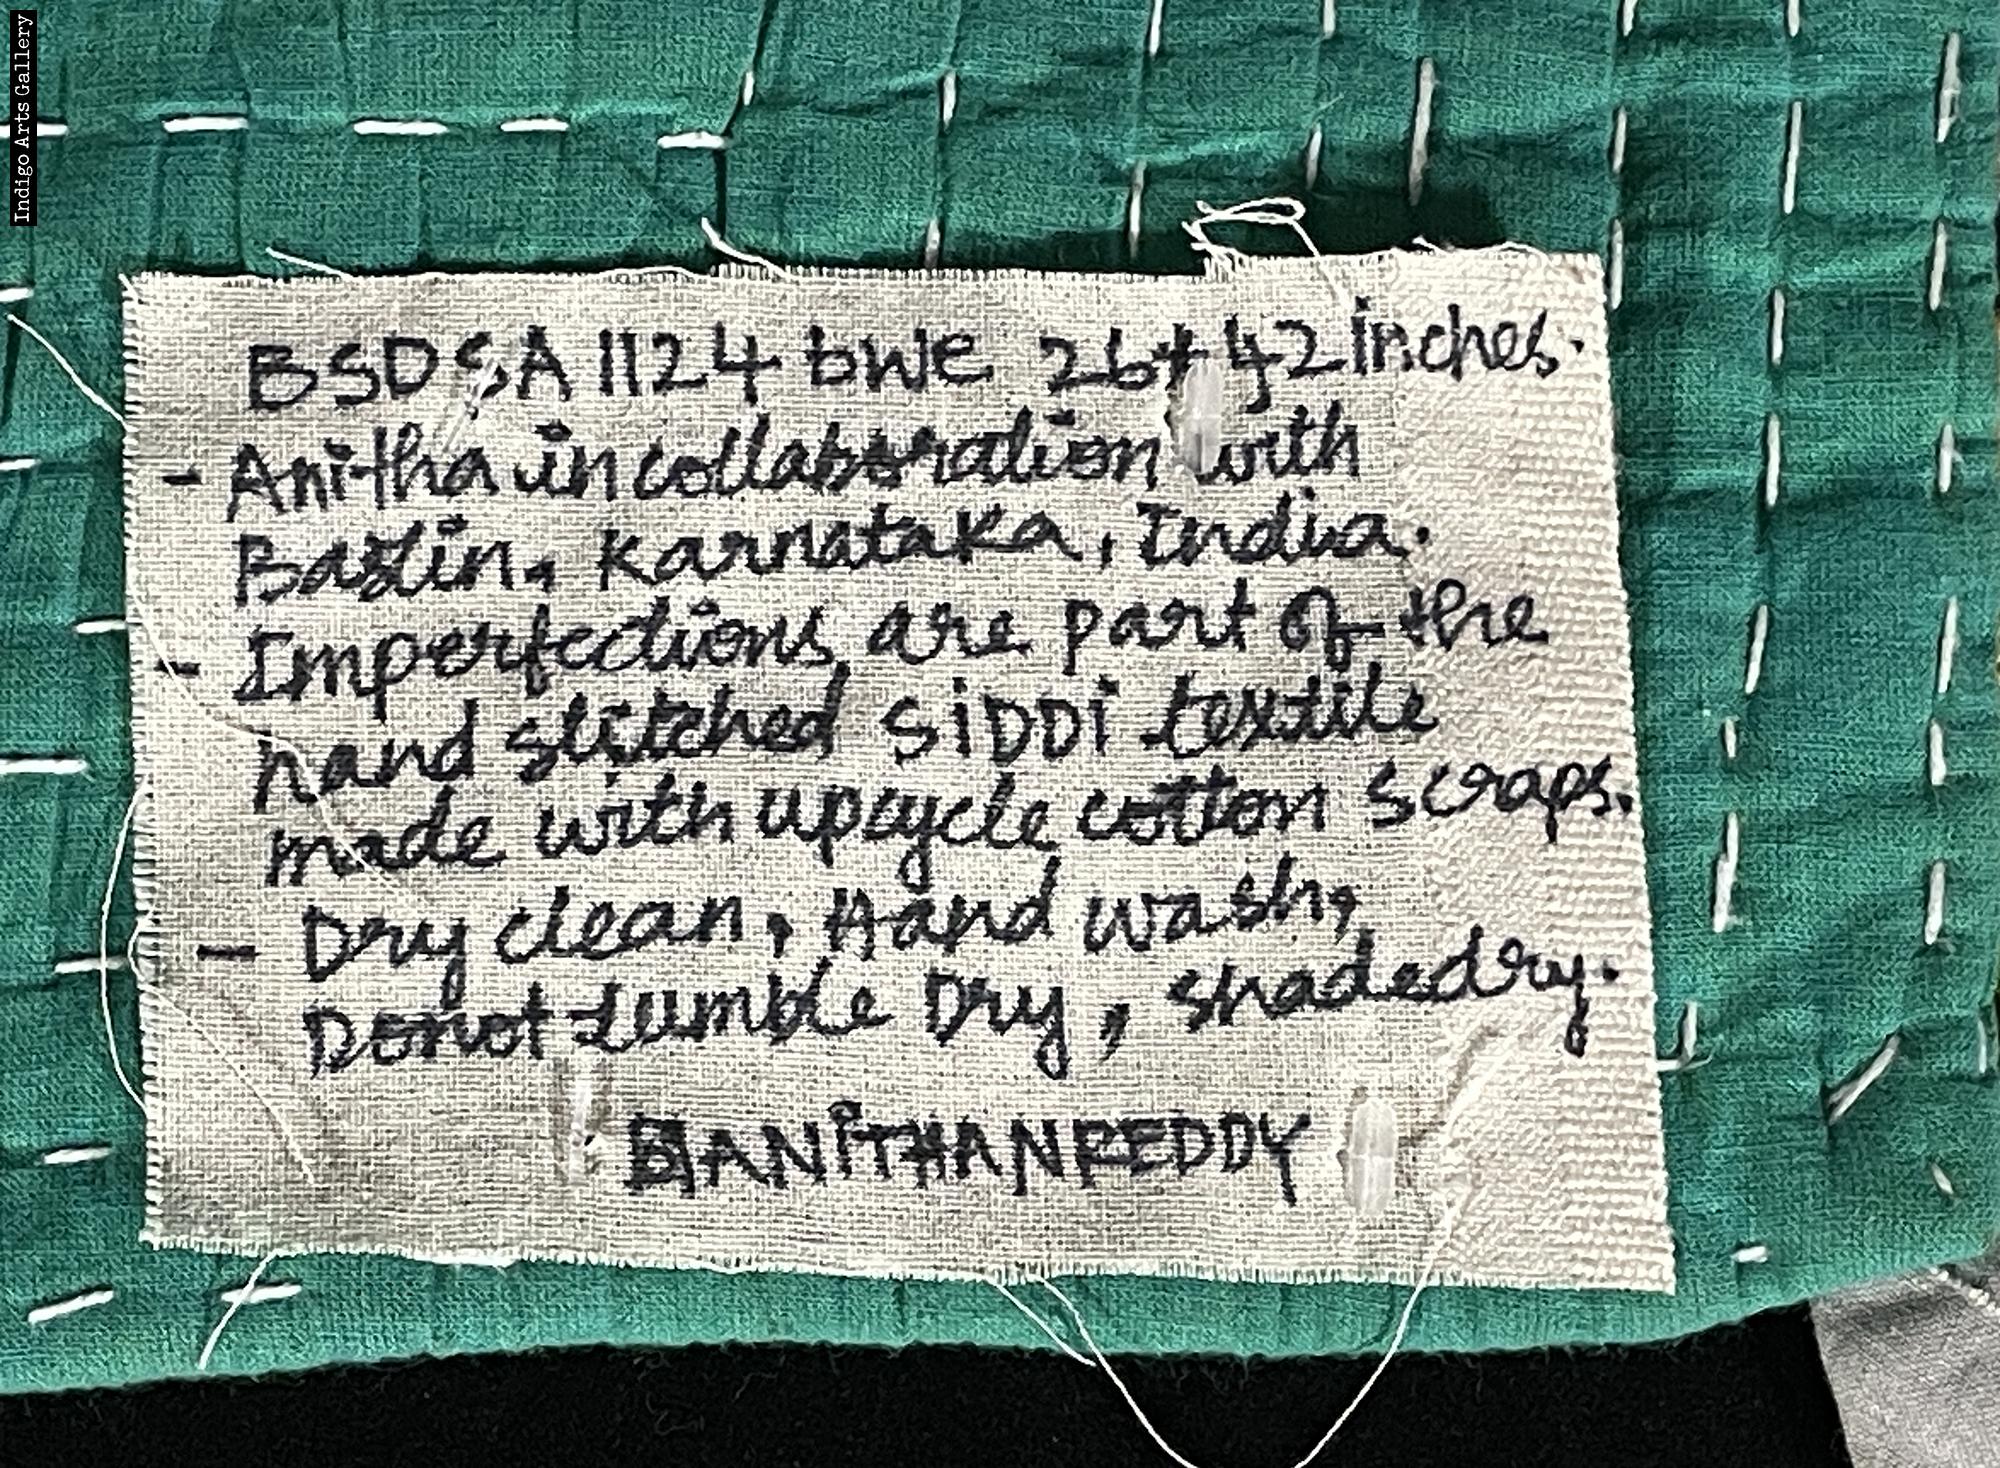 Indigo Arts Gallery
BSDSA1124 bwe 26* 42 inches.
- Anitha in collaboration with
Bastin, Karnataka, India.
- Imperfections are part of the
hand stitched SiDDi textile
made with upcycle cotton scraps.
- Dry clean, Hand wash,
Donot tumble Dry, shadedry.
ANiTHANREDDY